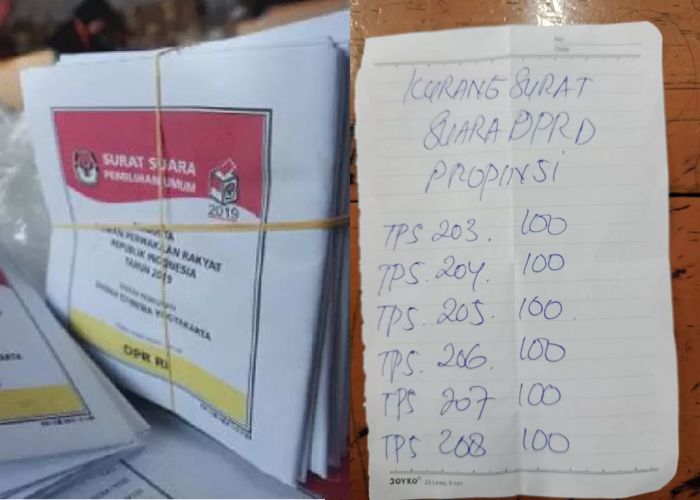 SURAT SUARA
PEMILIHAN UMUM
2019
PERWAKILAN RAKYAT
REPUBLIK INDONESIA
TAHUN 2019
DAERAH ISTIMEWA YOGYAKARTA
DPR RI
No
Date
KURANG SURAT
SUARA DPRD
PROPINSI
TPS 203. 100
TPS. 204. 100
TPS. 205. 100.
TPS. 206. 100
TPS 207 100
TPS 208 100
JOYKO